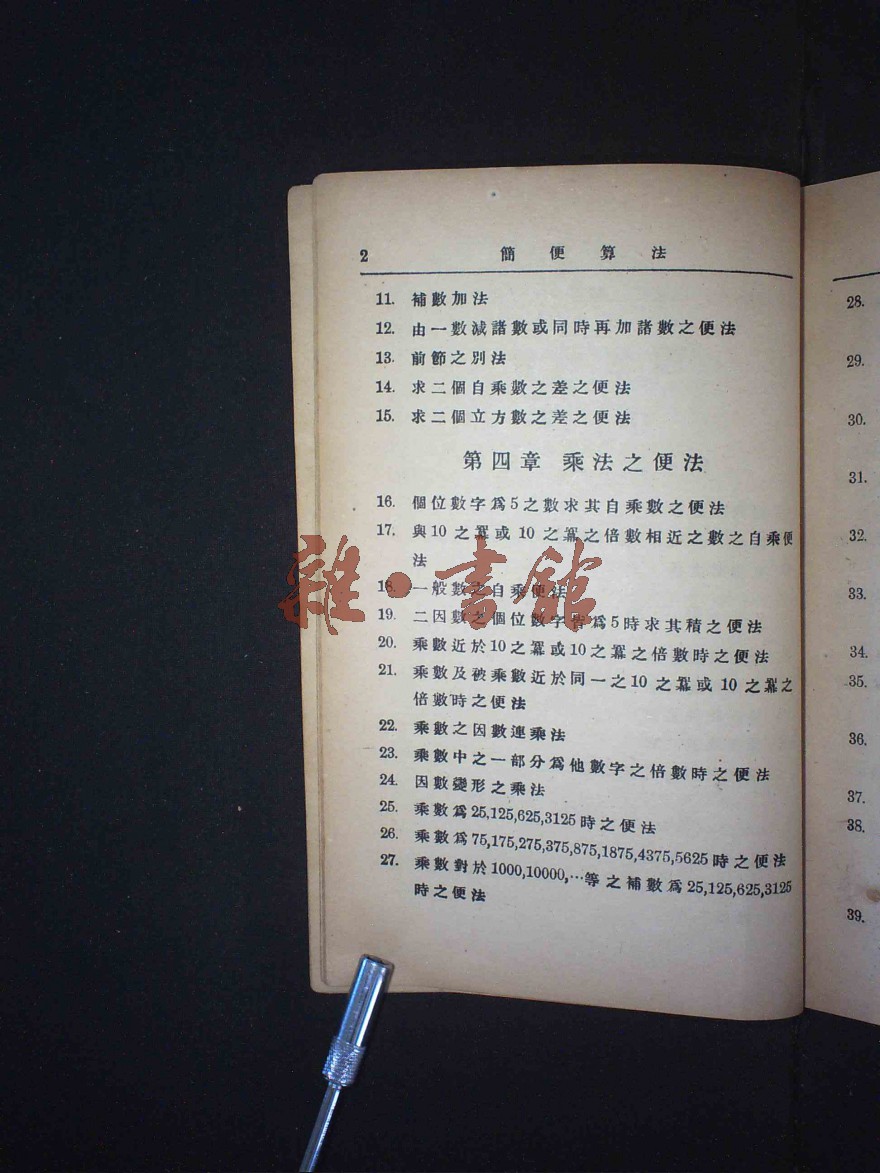 2 簡便算法
11. 補數加法
12. 由一數減諸數或同時再加諸數之便法
13. 前節之別法
14. 求二個自乘數之差之便法
15. 求二個立方數之差之便法
第四章 乘法之便法
16. 個位數字爲5之數求其自乘數之便法
17. 與10之冪或10之冪之倍數相近之數之自乘便
法
18. 一般數之自乘便法
19. 二因數之個位數字皆爲5時求其積之便法
20. 乘數近於10之冪或10之冪之倍數時之便法
21. 乘數及被乘數近於同一之10之冪或10之冪之
倍數時之便法
22. 乘數之因數連乘法
23. 乘數中之一部分爲他數字之倍數時之便法
24. 因數變形之乘法
25. 乘數爲25,125,625,3125時之便法
26. 乘數爲75,175,275,375,875,1875,4375,5625時之便法
27. 乘數對於1000,10000,…等之補數爲25,125,625,3125
時之便法
雜·書館
28.
29.
30.
31.
32.
33.
34.
35.
36.
37.
38.
39.